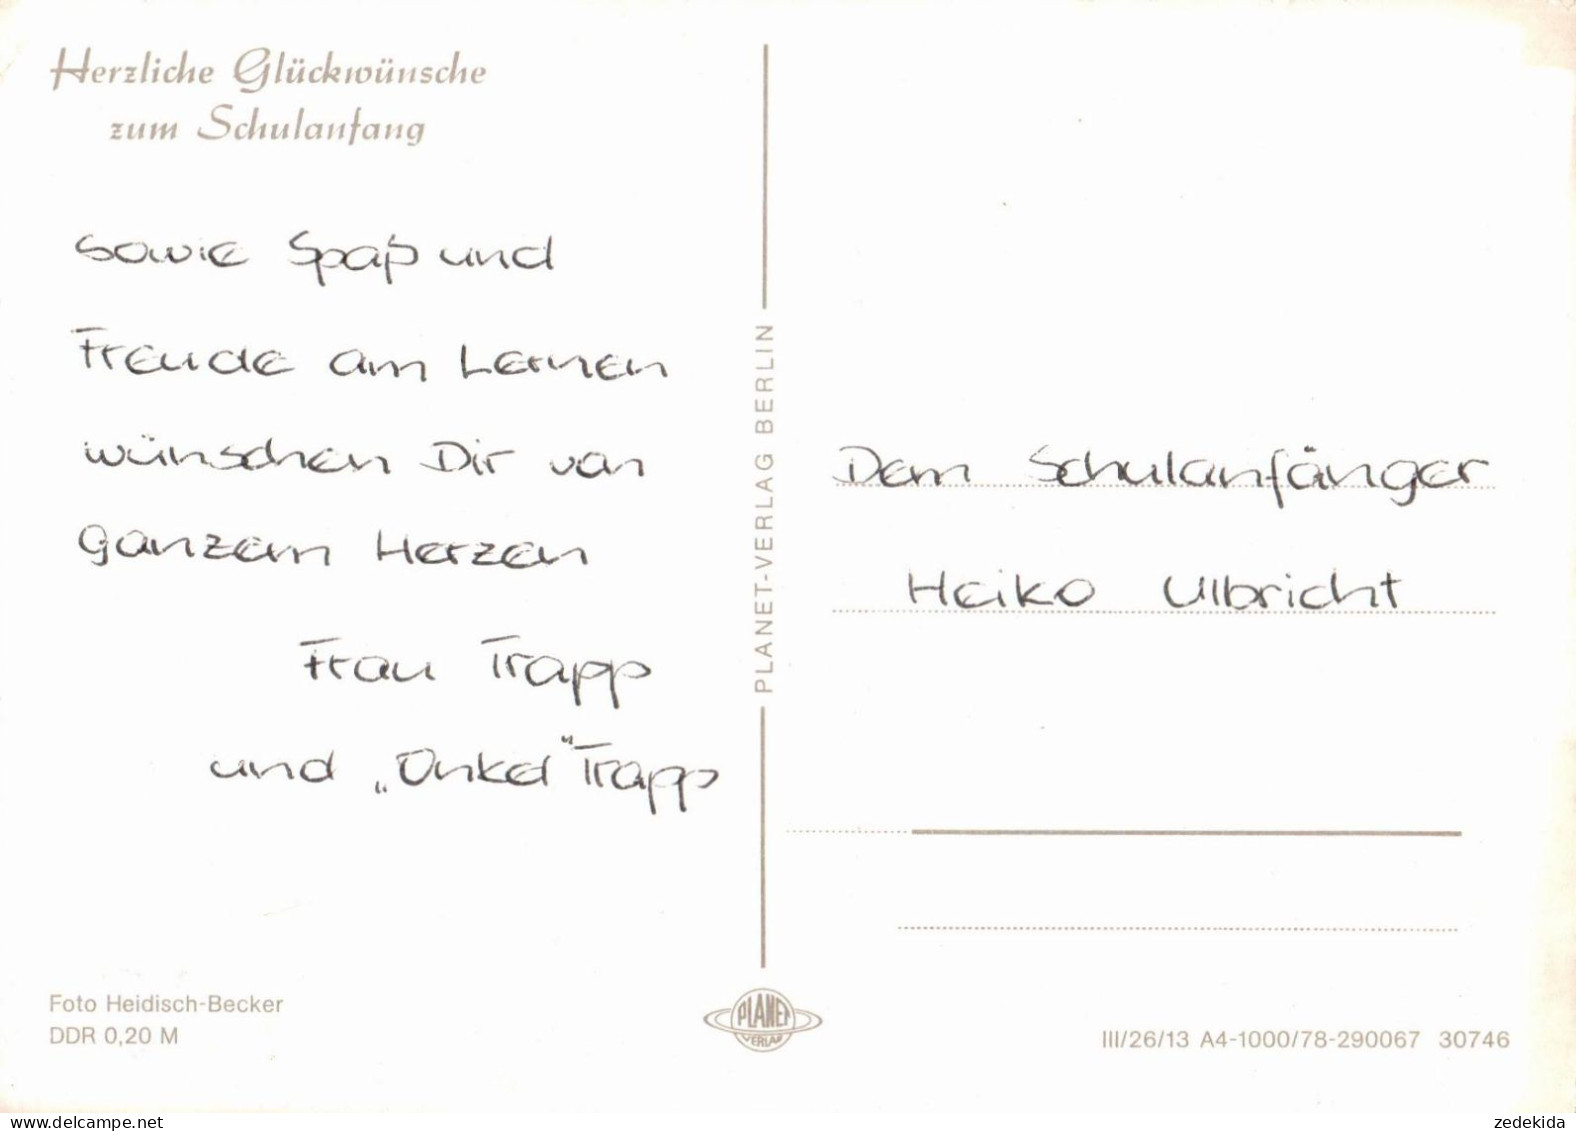 Herzliche Glückwünsche
zum Schulanfang
sowie Spaß und
Freude am Lernen
wünschen Dir von
ganzem Herzen
Frau Trapp
und „Onkel" Trapp
Foto Heidisch-Becker
DDR 0,20 M
PLANET-VERLAG BERLIN
PLANET
VERLAG
Dem Schulanfänger
Heiko Ulbricht
III/26/13 A4-1000/78-290067 30746
www.delcampe.net
zedekida